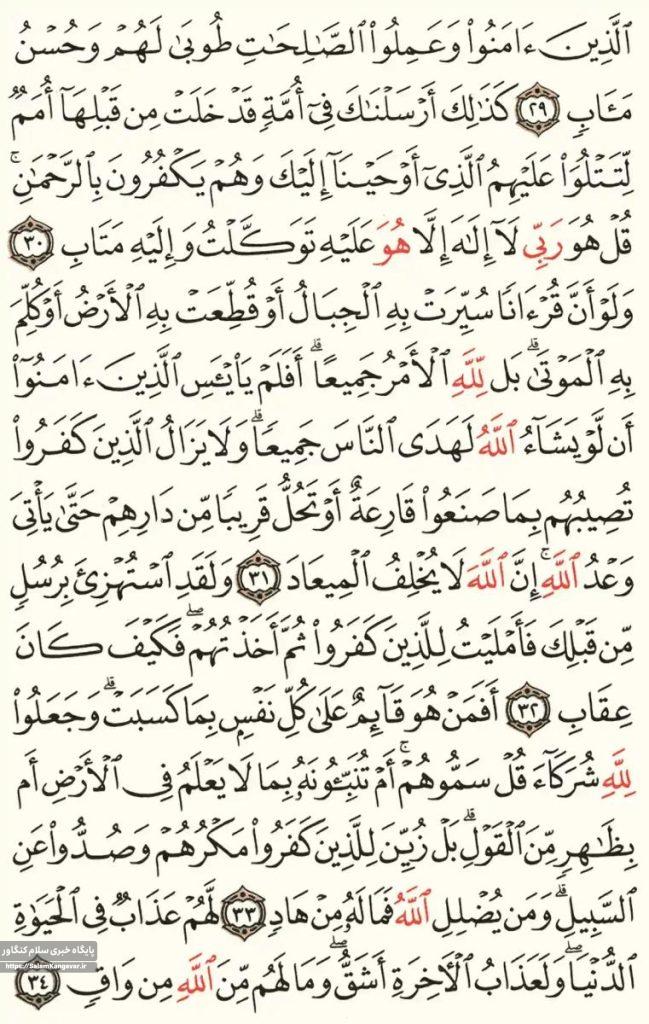 ٱلَّذِينَ ءَامَنُوا۟ وَعَمِلُوا۟ ٱلصَّـٰلِحَـٰتِ طُوبَىٰ لَهُمْ وَحُسْنُ
مَـَٔابٍ ٢٩ كَذَٰلِكَ أَرْسَلْنَـٰكَ فِىٓ أُمَّةٍ قَدْ خَلَتْ مِن قَبْلِهَآ أُمَمٌ
لِّتَتْلُوَا۟ عَلَيْهِمُ ٱلَّذِىٓ أَوْحَيْنَآ إِلَيْكَ وَهُمْ يَكْفُرُونَ بِٱلرَّحْمَـٰنِ ۚ
قُلْ هُوَ رَبِّى لَآ إِلَـٰهَ إِلَّا هُوَ عَلَيْهِ تَوَكَّلْتُ وَإِلَيْهِ مَتَابِ ٣٠
وَلَوْ أَنَّ قُرْءَانًا سُيِّرَتْ بِهِ ٱلْجِبَالُ أَوْ قُطِّعَتْ بِهِ ٱلْأَرْضُ أَوْ كُلِّمَ
بِهِ ٱلْمَوْتَىٰ ۗ بَل لِّلَّهِ ٱلْأَمْرُ جَمِيعًا ۗ أَفَلَمْ يَا۟يْـَٔسِ ٱلَّذِينَ ءَامَنُوٓا۟
أَن لَّوْ يَشَآءُ ٱللَّهُ لَهَدَى ٱلنَّاسَ جَمِيعًا ۗ وَلَا يَزَالُ ٱلَّذِينَ كَفَرُوا۟
تُصِيبُهُم بِمَا صَنَعُوا۟ قَارِعَةٌ أَوْ تَحُلُّ قَرِيبًا مِّن دَارِهِمْ حَتَّىٰ يَأْتِىَ
وَعْدُ ٱللَّهِ ۚ إِنَّ ٱللَّهَ لَا يُخْلِفُ ٱلْمِيعَادَ ٣١ وَلَقَدِ ٱسْتُهْزِئَ بِرُسُلٍ
مِّن قَبْلِكَ فَأَمْلَيْتُ لِلَّذِينَ كَفَرُوا۟ ثُمَّ أَخَذْتُهُمْ ۖ فَكَيْفَ كَانَ
عِقَابِ ٣٢ أَفَمَنْ هُوَ قَآئِمٌ عَلَىٰ كُلِّ نَفْسٍۭ بِمَا كَسَبَتْ ۗ وَجَعَلُوا۟
لِلَّهِ شُرَكَآءَ قُلْ سَمُّوهُمْ ۚ أَمْ تُنَبِّـُٔونَهُۥ بِمَا لَا يَعْلَمُ فِى ٱلْأَرْضِ أَم
بِظَـٰهِرٍ مِّنَ ٱلْقَوْلِ ۗ بَلْ زُيِّنَ لِلَّذِينَ كَفَرُوا۟ مَكْرُهُمْ وَصُدُّوا۟ عَنِ
ٱلسَّبِيلِ ۗ وَمَن يُضْلِلِ ٱللَّهُ فَمَا لَهُۥ مِنْ هَادٍ ٣٣ لَّهُمْ عَذَابٌ فِى ٱلْحَيَوٰةِ
ٱلدُّنْيَا ۖ وَلَعَذَابُ ٱلْـَٔاخِرَةِ أَشَقُّ ۖ وَمَا لَهُم مِّنَ ٱللَّهِ مِن وَاقٍ ٣٤
پایگاه خبری سلام کنگاور
https://SalamKangavar.ir